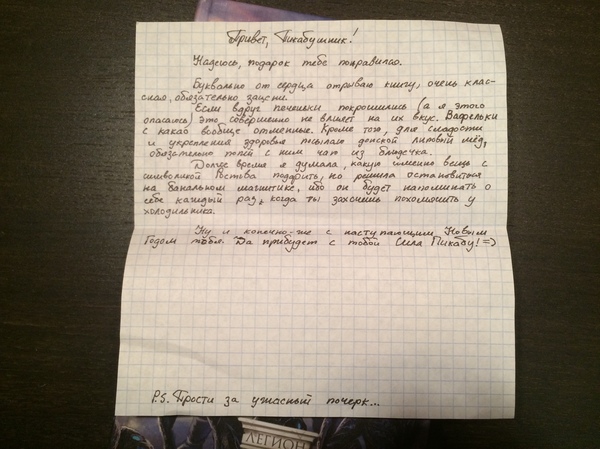 Привет, Пикабушник!
Надеюсь, подарок тебе понравился.
Буквально от сердца отрываю книгу, очень клас-
сная, обязательно зацени.
Если вдруг печеньки покрошились (а я этого
опасаюсь) это совершенно не влияет на их вкус. Вафельки
с какао вообще отменные. Кроме того, для сладости
и укрепления здоровья посылаю донской липовый мёд,
обязательно попей с ним чай из блюдечка.
Долгое время я думала, какую именно вещь с
символикой Ростова подарить, но решила остановиться
на банальном магнитике, ибо он будет напоминать о
себе каждый раз, когда ты захочешь похомячить у
холодильника.
Ну и конечно-же с наступающим Новым
Годом тебя. Да прибудет с тобой Сила Пикабу! =)
P.S. Прости за ужасный почерк...
ЛЕГИОН